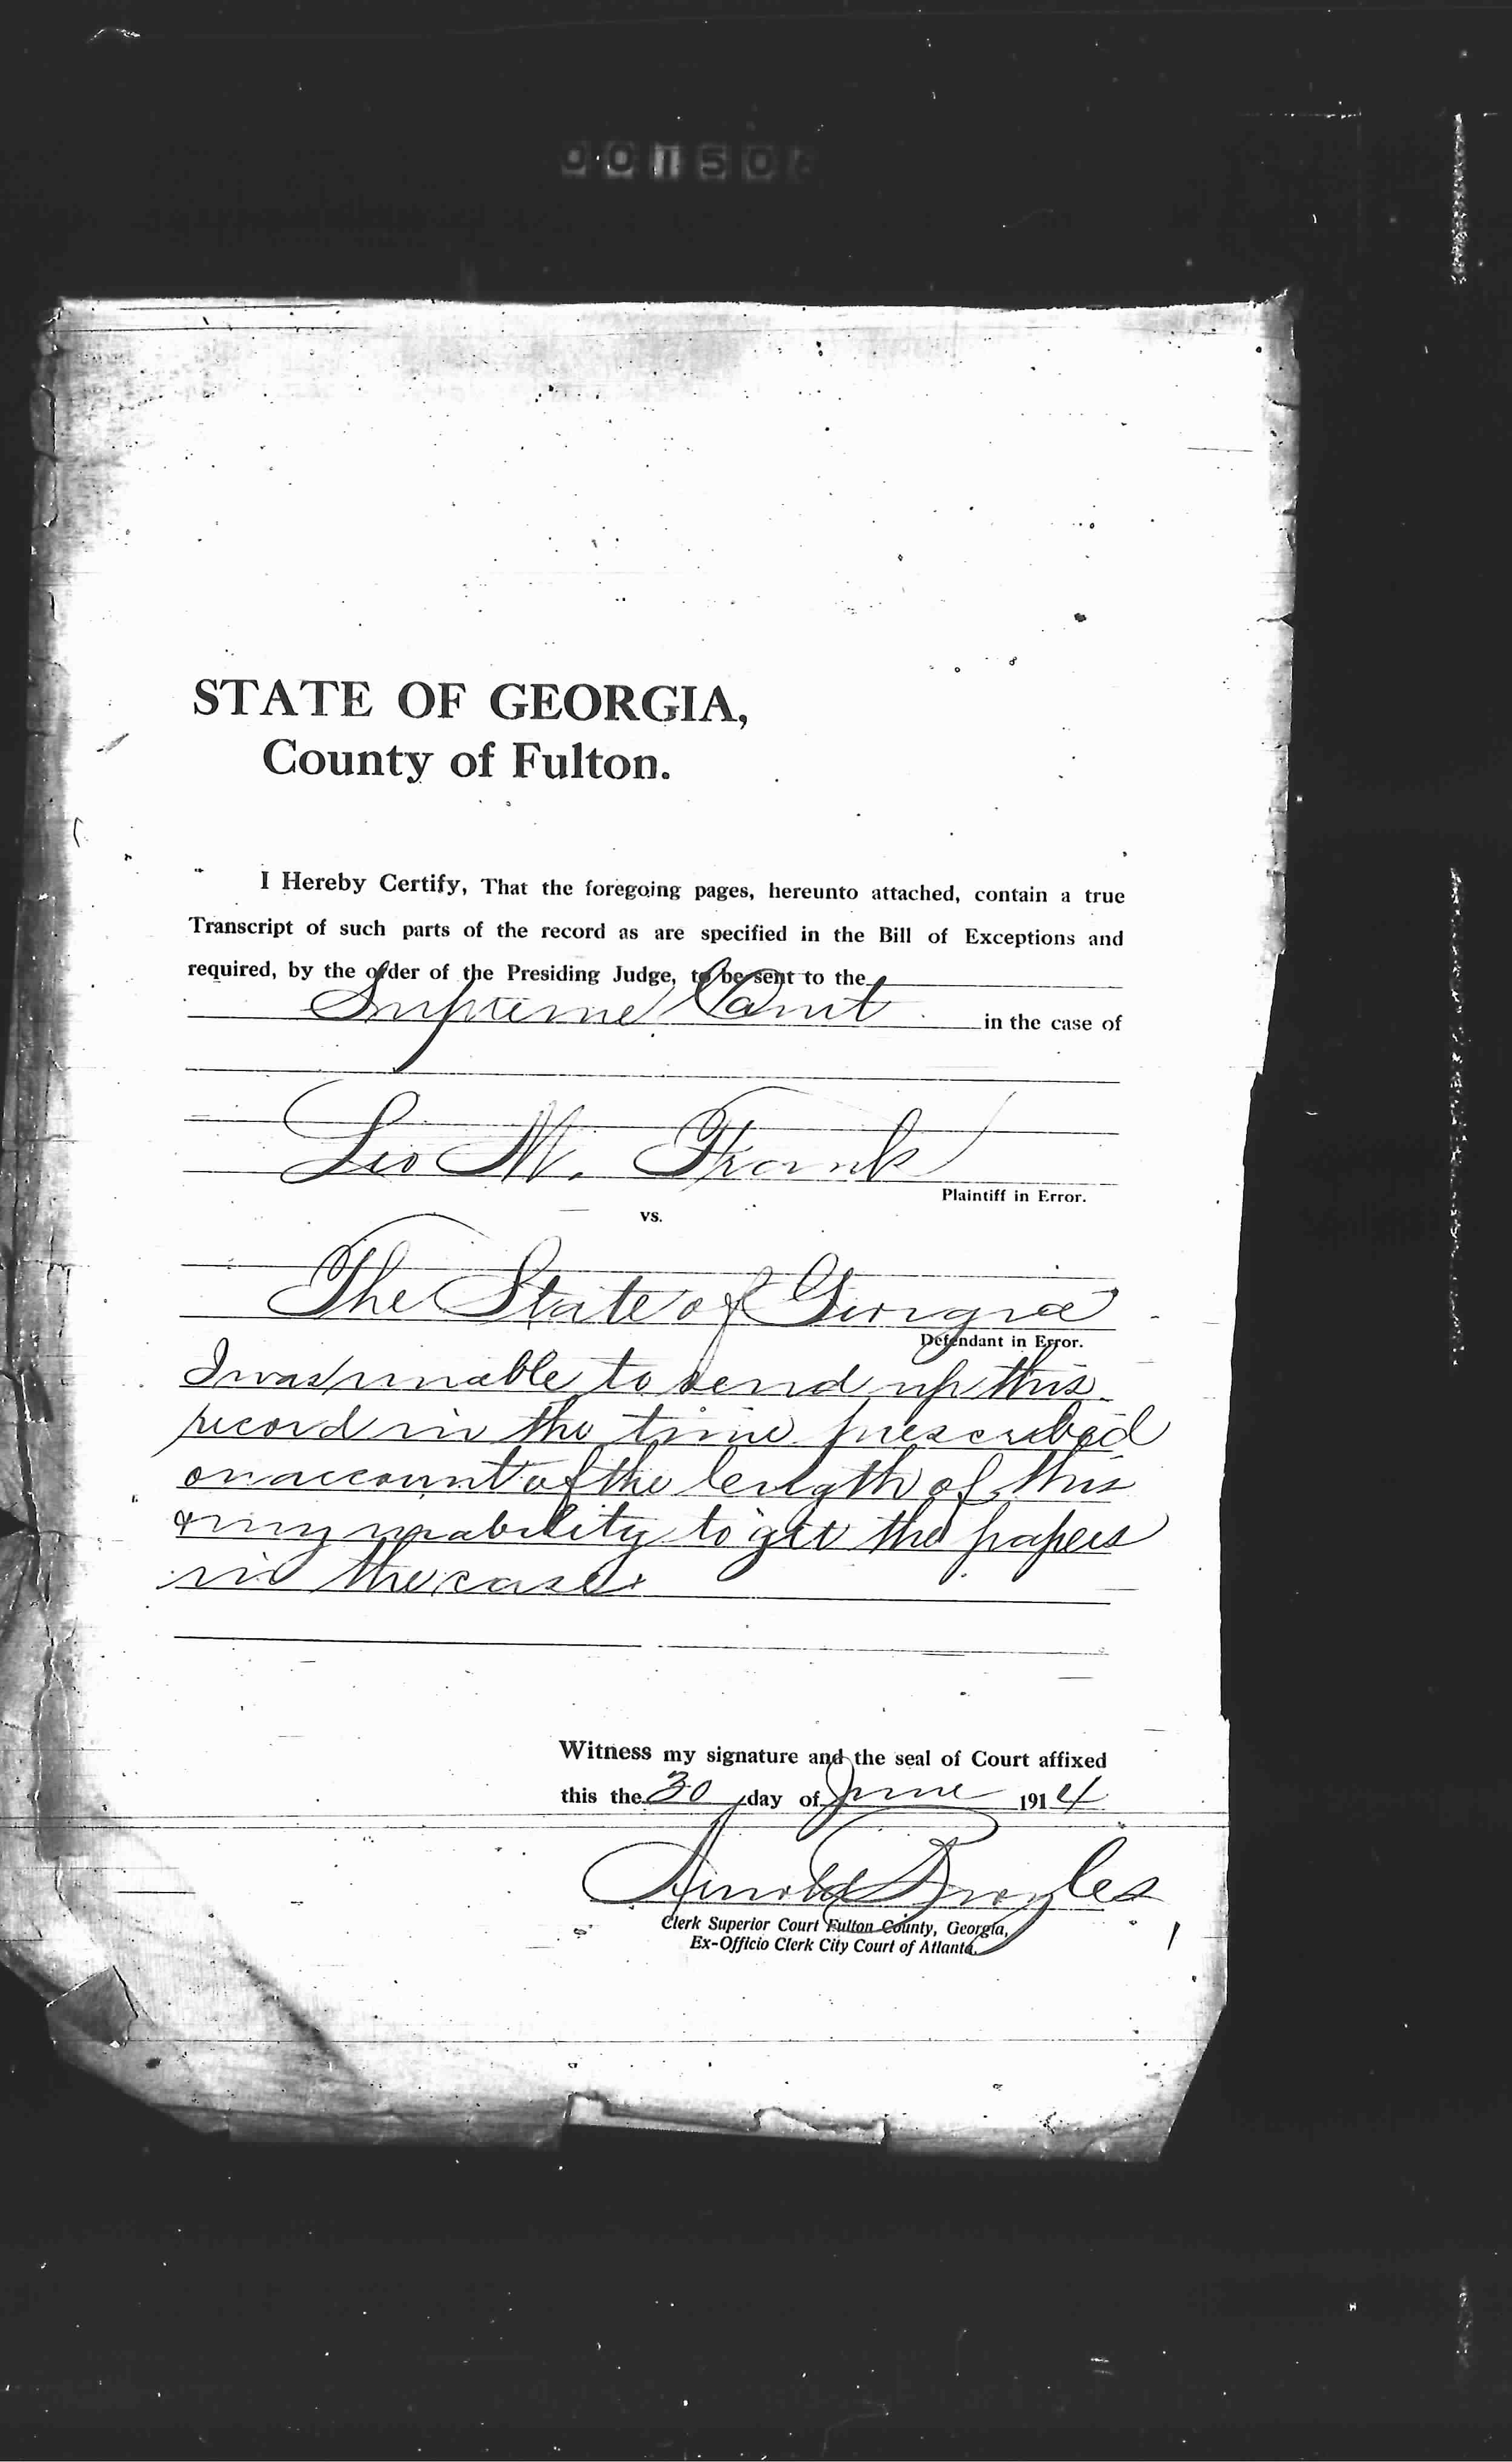 STATE OF GEORGIA,
County of Fulton.
I Hereby Certify, That the foregoing pages, hereunto attached, contain a true
Transcript of such parts of the record as are specified in the Bill of Exceptions and
required, by the order of the Presiding Judge, to be sent to the
Supreme Court in the case of
Leo M. Frank
Plaintiff in Error.
vs.
The State of Georgia
Defendant in Error.
I was unable to send up this
record in the time prescribed
on account of the length of this
& my inability to get the papers
in the case.
Witness my signature and the seal of Court affixed
this the 30 day of June 1914
Arnold Broyles
Clerk Superior Court Fulton County, Georgia,
Ex-Officio Clerk City Court of Atlanta.